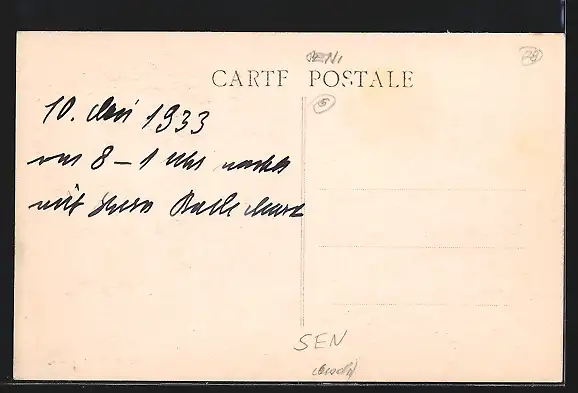 CARTE POSTALE
10. Mai 1933
von 8 – 1 Uhr nachts
mit Herrn
SEN